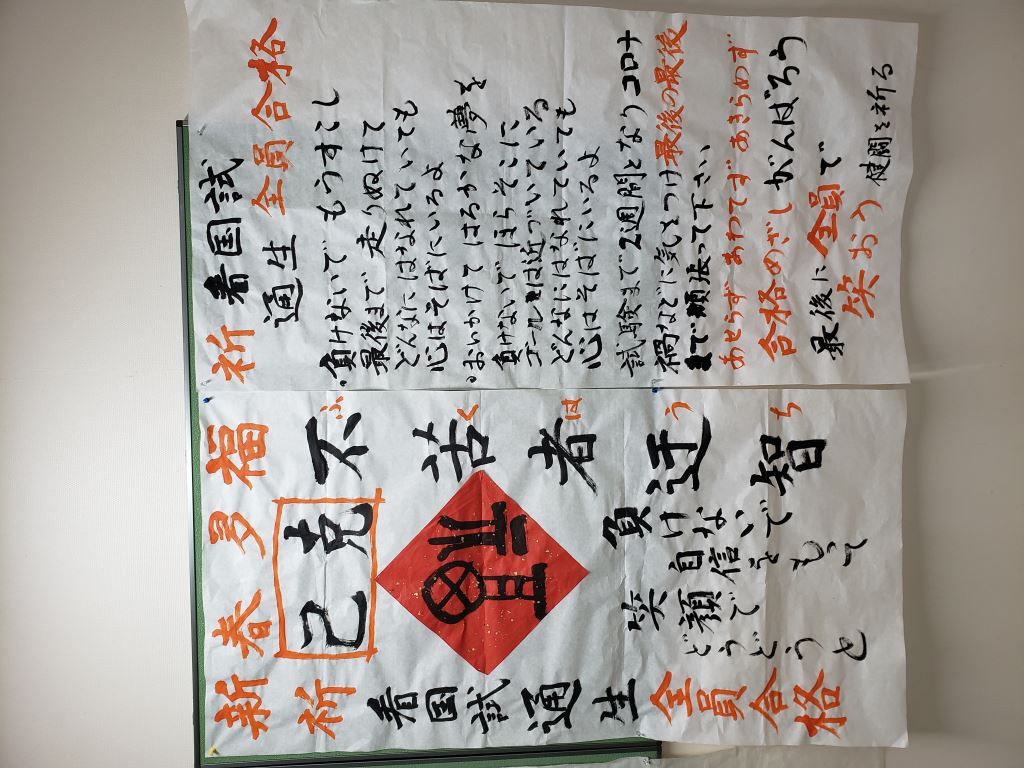 新春多福
克己
不苦者迂智
ふくはうち
福
負けないで
自信をもって
笑顔で
どうどうと
祈 看国試通生 全員合格
祈 看国試 通生 全員合格
・負けないで もうすこし
最後まで 走りぬけて
どんなにはなれていても
心はそばにいるよ
・おいかけて はるかな夢を
負けないで ほらそこに
ゴールは近づいている
どんなにはなれていても
心はそばにいるよ
試験まで2週間となりコロナ
禍などに気をつけ最後の最後
まで頑張って下さい、
あせらず あわてず あきらめず
合格めざし がんばろう
最後に全員で
笑おう
健闘を祈る